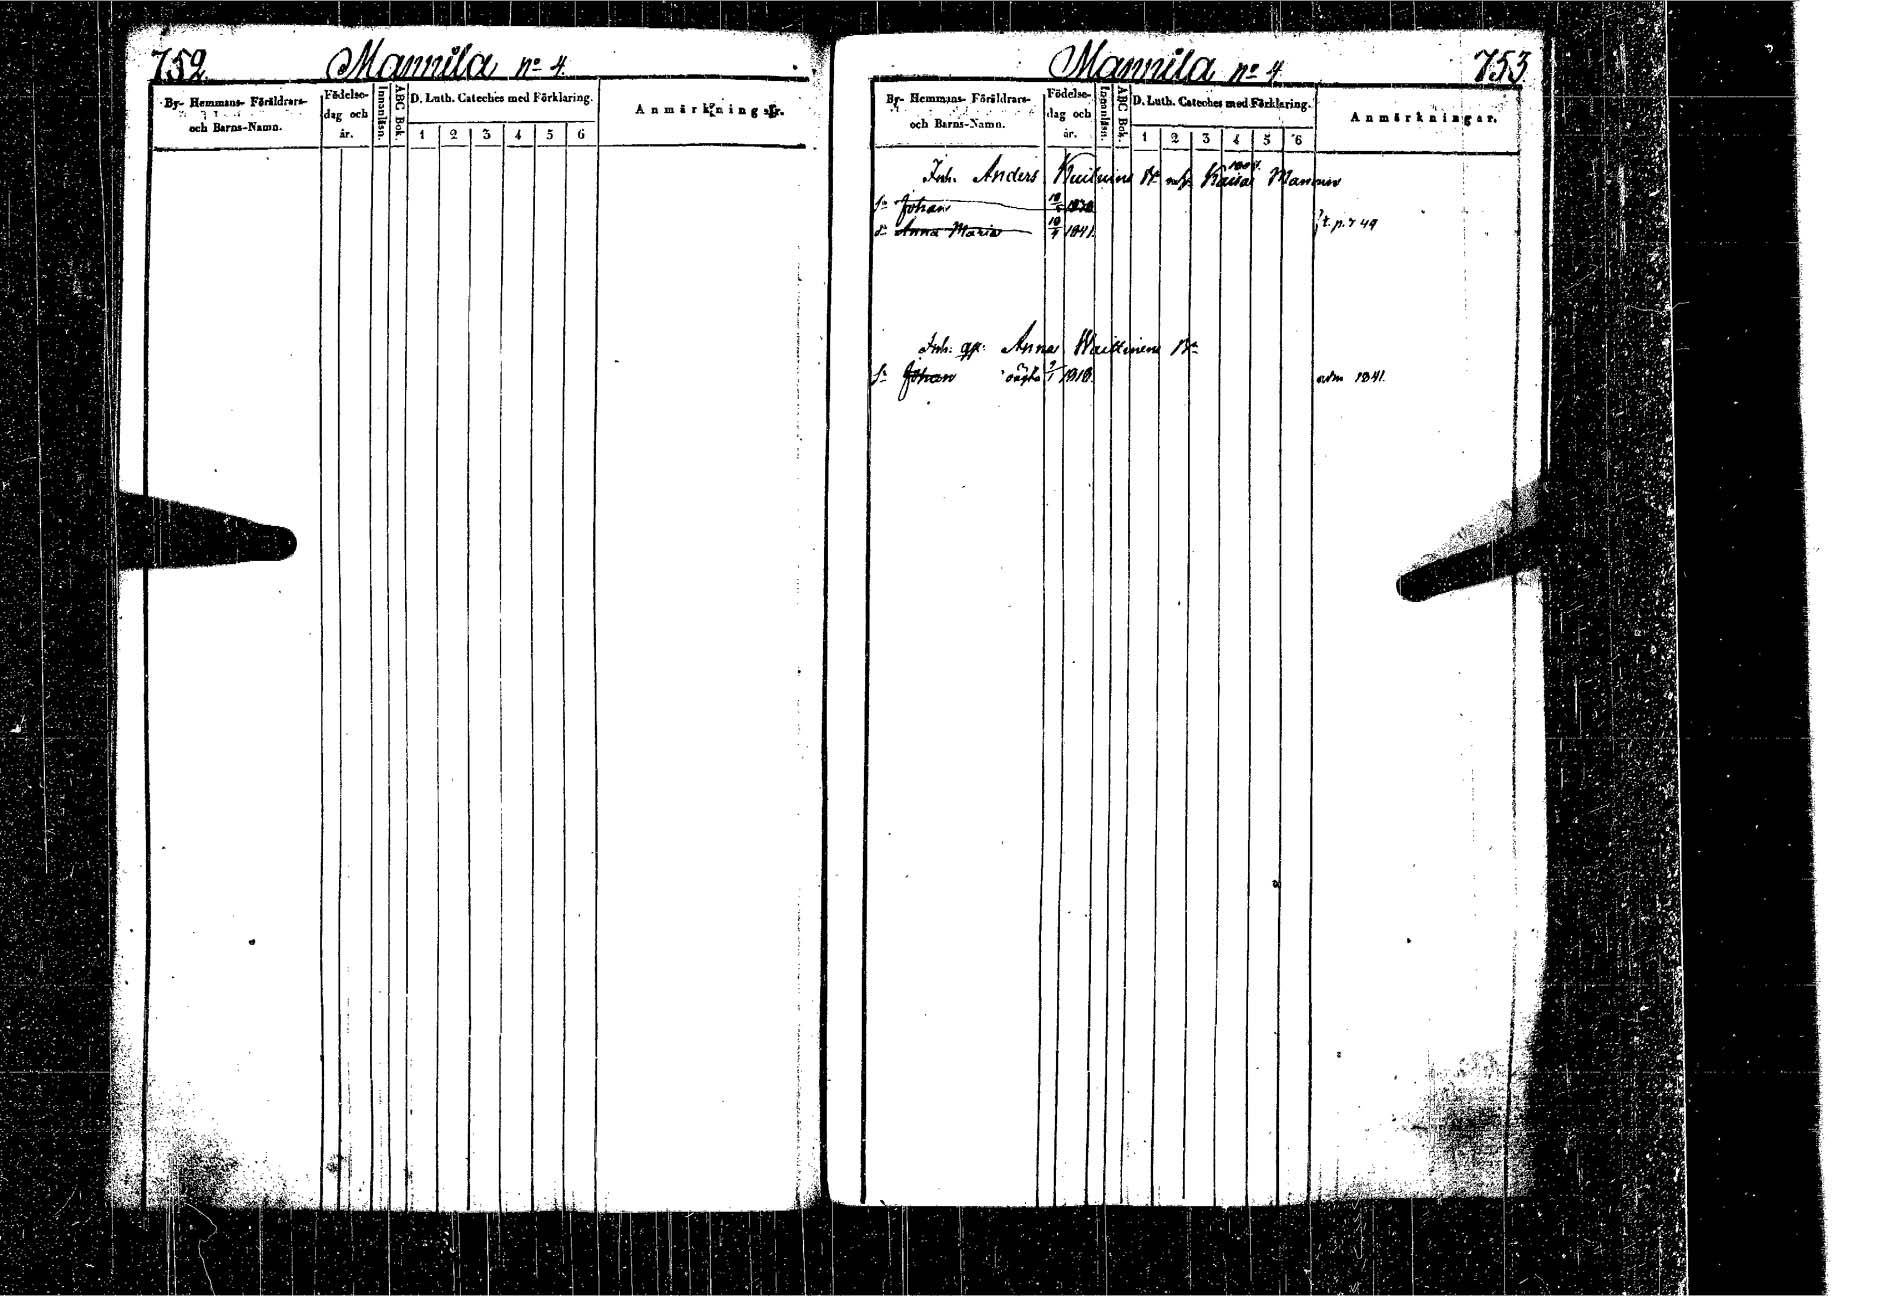 752
Mannila no 4.
By- Hemmans- Föräldrars-
och Barns-Namn.
Födelse-
dag och
år.
Innanläsn.
ABC Bok.
D. Luth. Cateches med Förklaring.
1 2 3 4 5 6
Anmärkningar.
Mannila no 4
753
By- Hemmans- Föräldrars-
och Barns-Namn.
Födelse-
dag och
år.
Innanläsn.
ABC Bok.
D. Luth. Cateches med Förklaring.
1 2 3 4 5 6
Anmärkningar.
Inh. Anders Kaisa
Sn Johan
dr Anna Maria 10/4 1841. t. p. 749
Inh. Anna
Sn Johan oägta 1818. adm 1841.